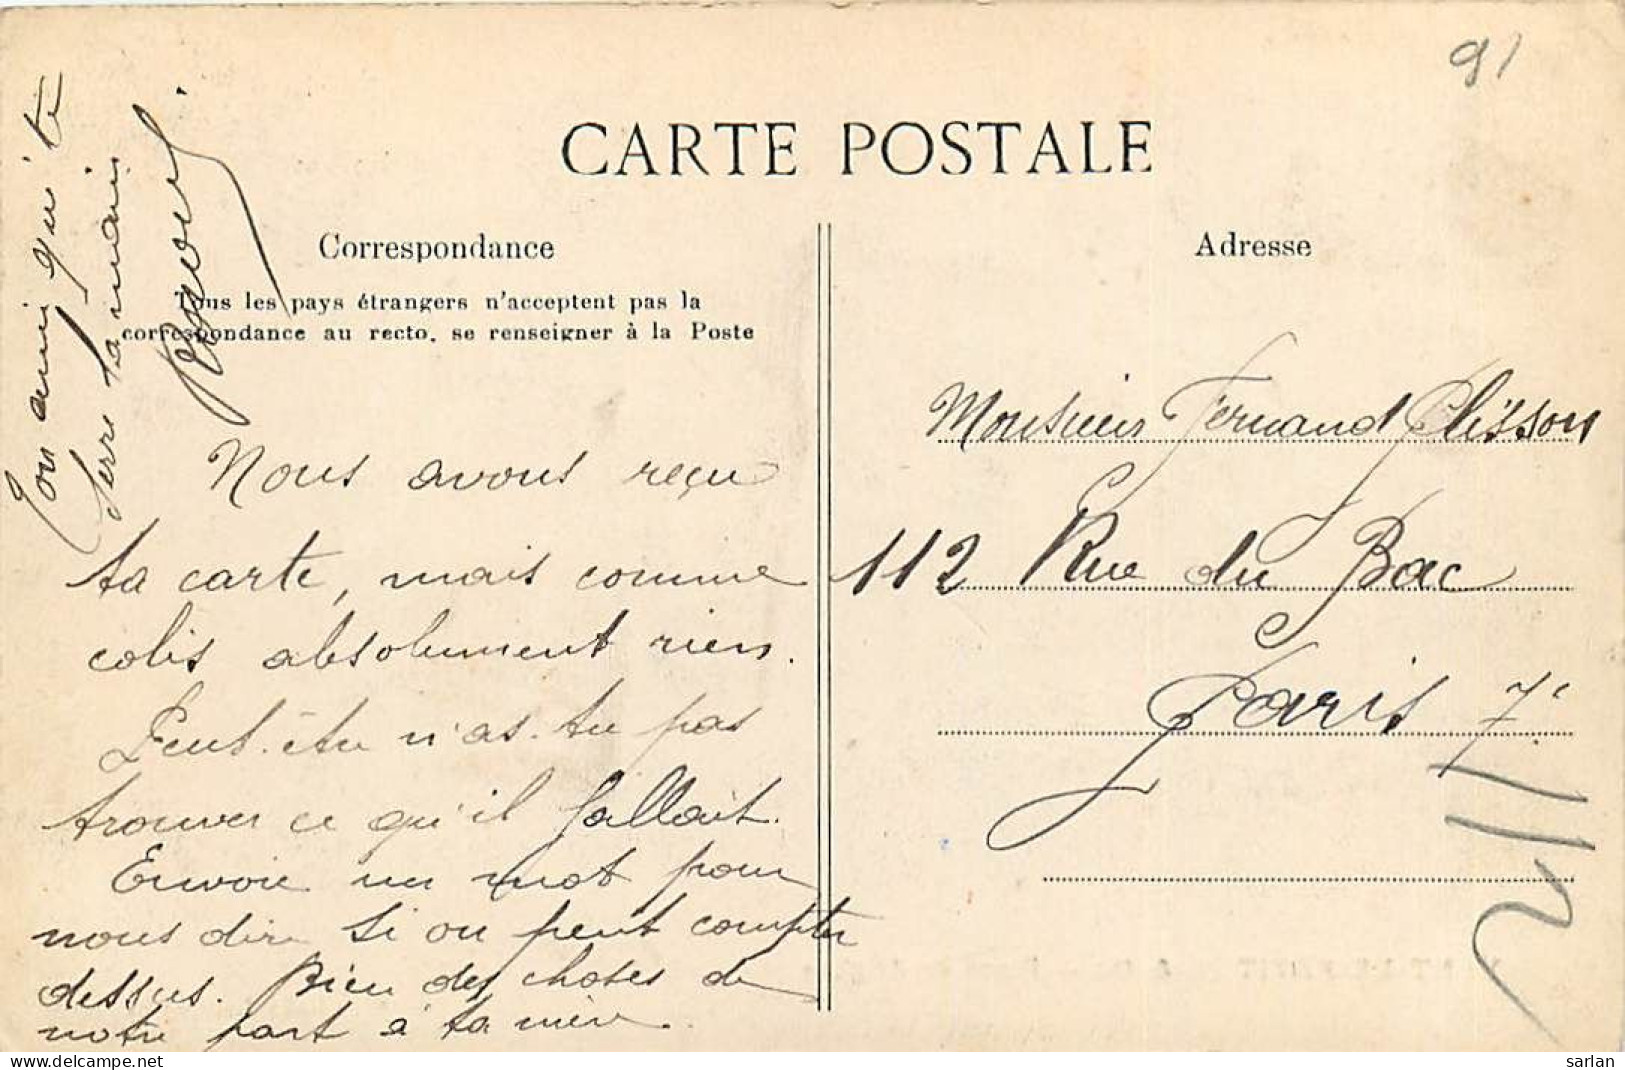 91
CARTE POSTALE
Correspondance
Tous les pays étrangers n'acceptent pas la
correspondance au recto, se renseigner à la Poste
Nous avons reçu
ta carte, mais comme
colis absolument rien.
Peut-être n'as-tu pas
trouver ce qu'il fallait.
Envoie un mot pour
nous dire si on peut compter
dessus. Bien des choses de
notre part à ta mère.
Ton ami qui te
serre la main
Adresse
Monsieur Fernand Clisson
112 Rue du Bac
Paris 7e
sarlan
delcampe.net